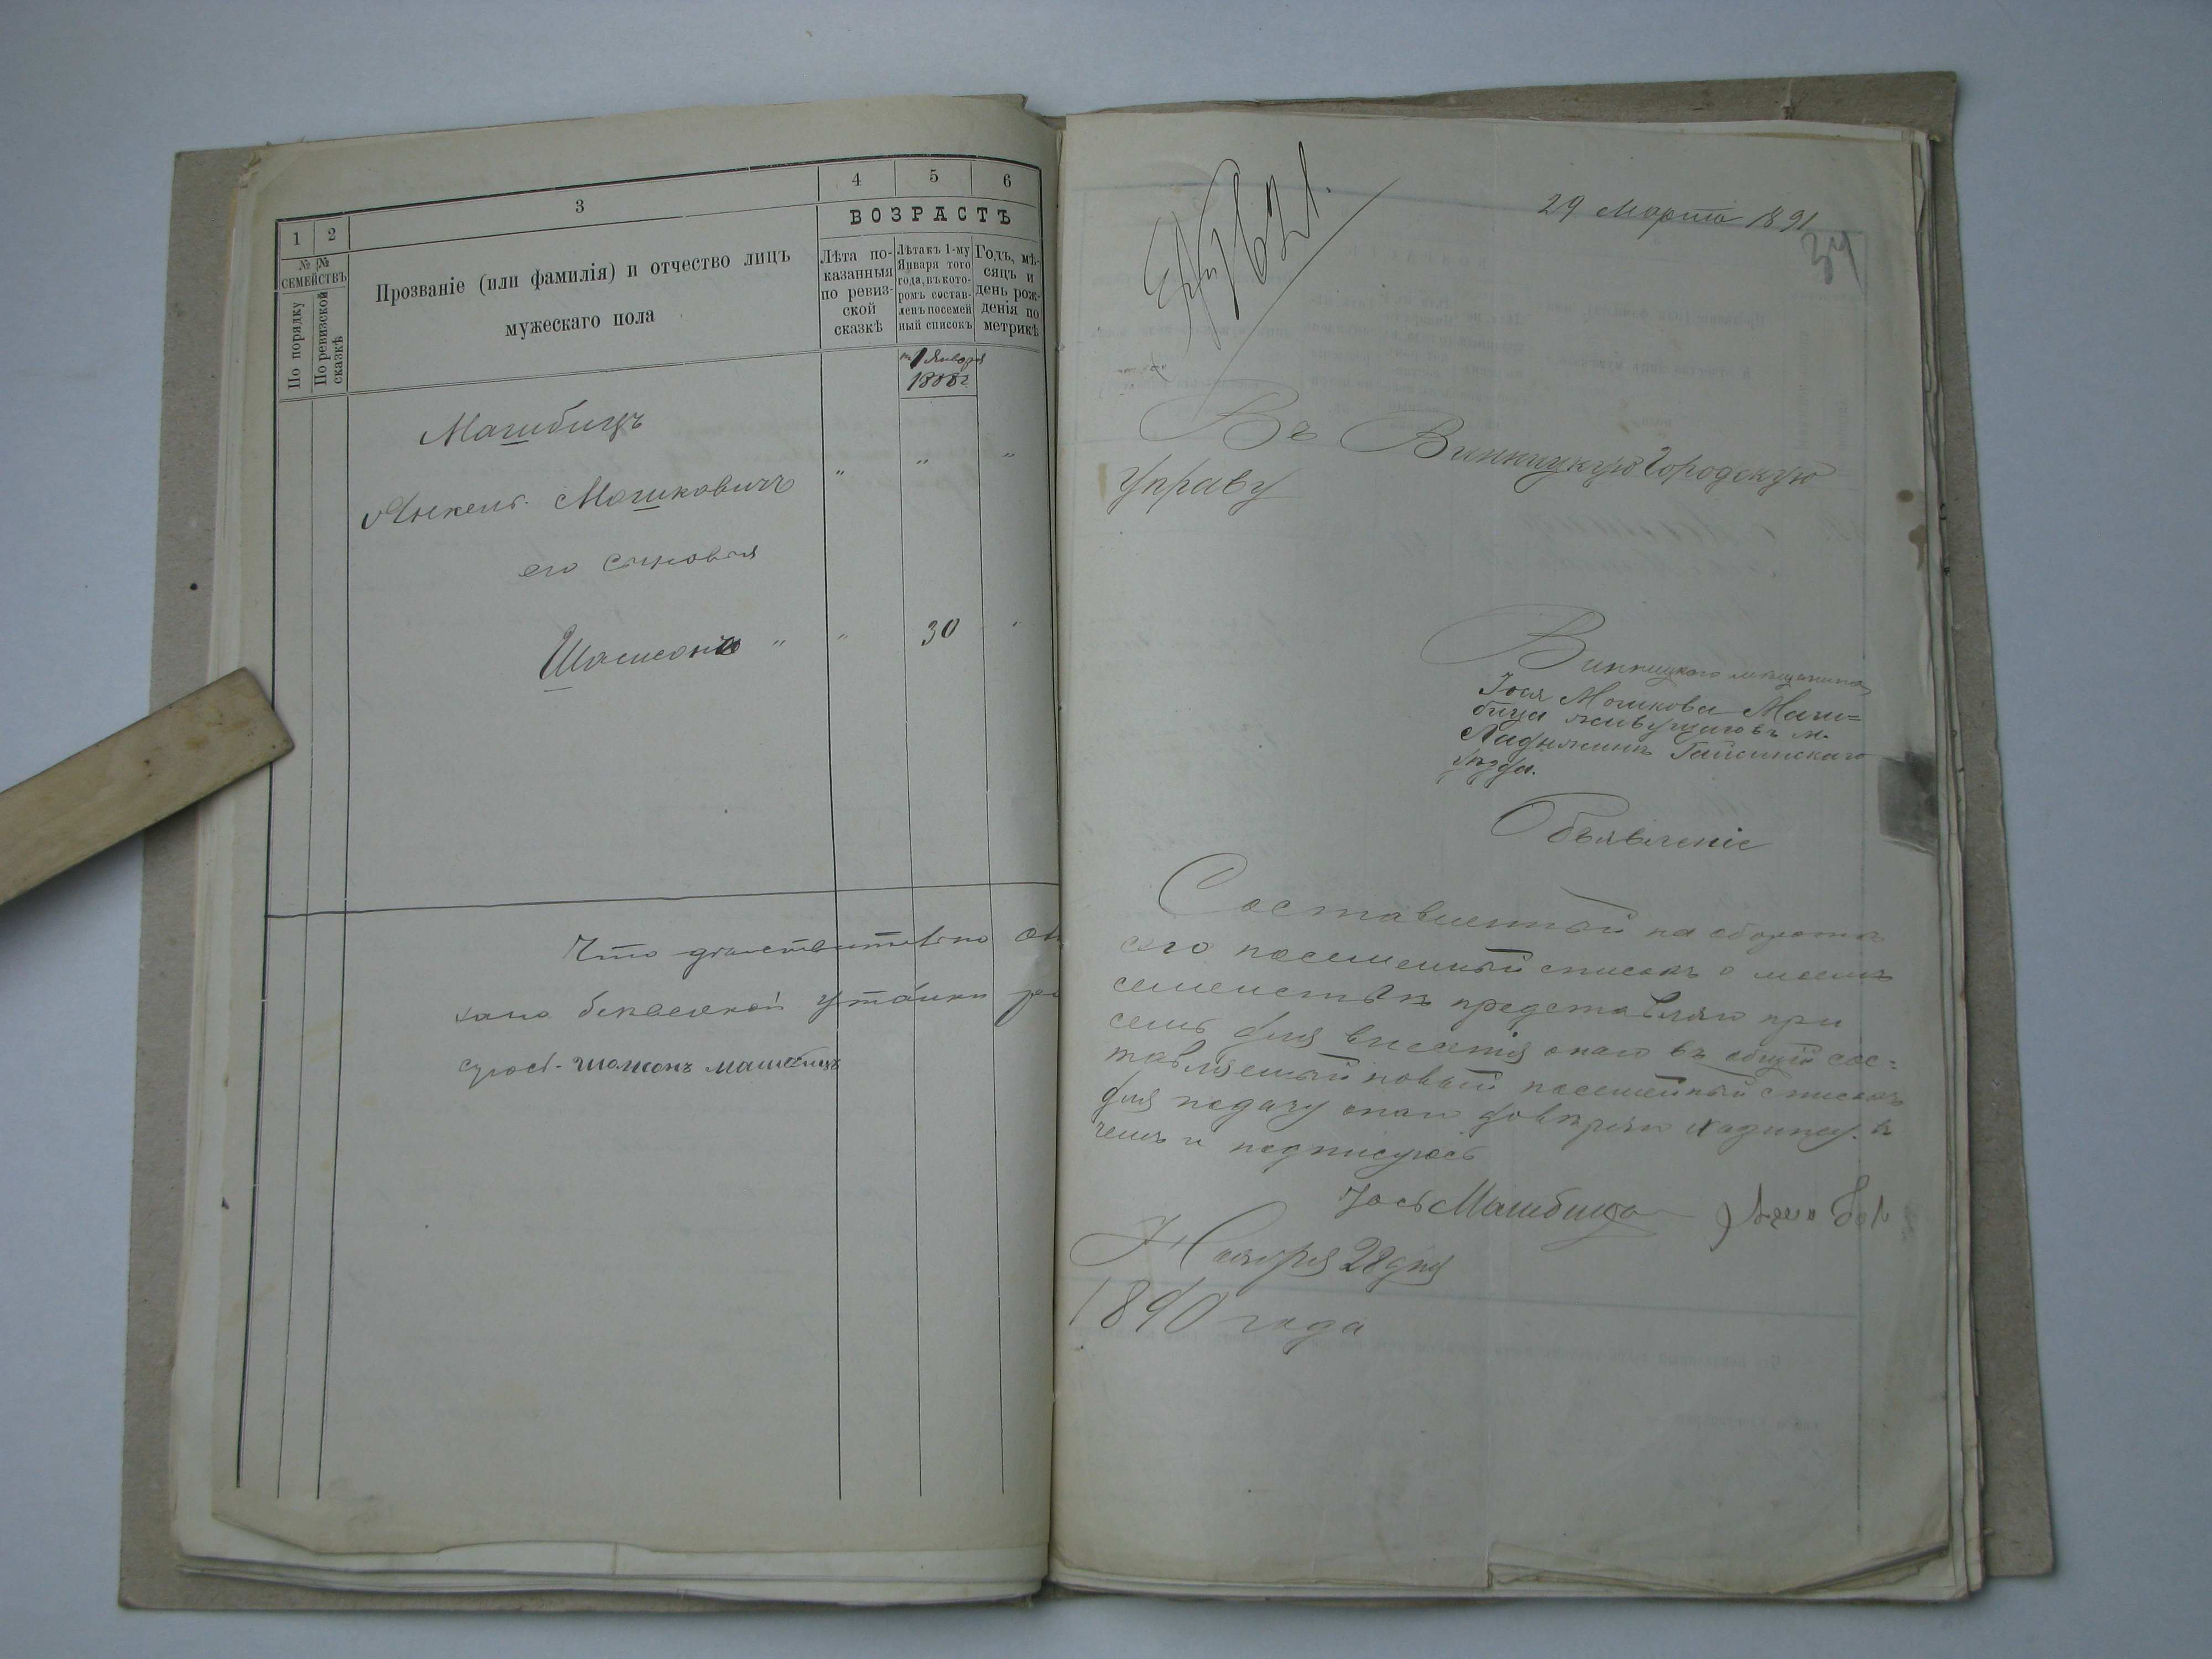 1 2 3 4 5 6
№ № СЕМЕЙСТВЪ
По порядку
По ревизской сказкѣ
Прозваніе (или фамилія) и отчество лицъ
мужескаго пола
ВОЗРАСТЪ
Лѣта по-
казанныя
по ревиз-
ской
сказкѣ
Лѣта къ 1-му
Января того
года, въ кото-
ромъ состав-
ленъ посемей
ный списокъ
Годъ, мѣ-
сяцъ и
день рож-
денія по
метрикѣ
1 Января
1888 г.
Машбицъ
Янкель Мошковичъ " " "
его сыновья
Шлиома " " 30 "
Что дѣйствительно
сусѣ. шолионъ машбицъ
29 Марта 1891
34
Въ Винницкую Городскую
Управу
Винницкого мѣщанина
Іося Мошкова Маш=
бица живущаго въ м.
Ладыжинѣ Гайсинскаго
уѣзда.
Объявленіе
Составленный на оборотѣ
сего посемейный списокъ о моемъ
семействѣ представляю при
семъ для внесенія онаго въ общій сос=
тавляемый новый посемейный списокъ
для подачу онаго довѣряю къ
чемъ и подписуюсь
Іось Машбицъ
Ноября 28 дня
1890 года